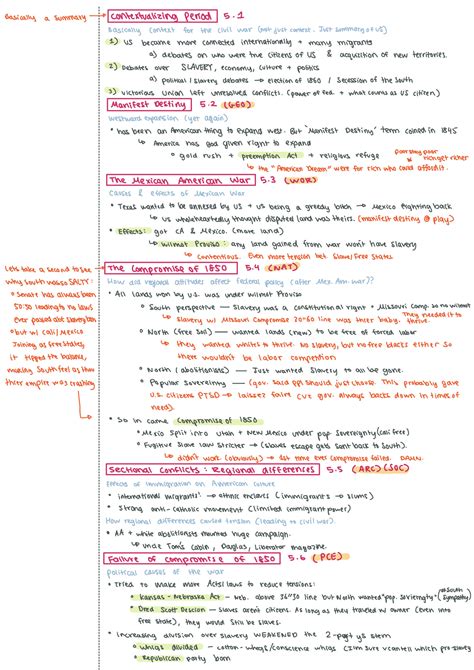 Basically a summary
Contextualizing Period 5.1
Basically context for the civil war (not just context. Just summary of US)
1) US became more connected internationally + many migrants
a) debates on who were true citizens of US & acquisition of new territories.
2) Debates over SLAVERY, economy, culture + politics
a) political / slavery debates → election of 1860 / Secession of the South
3) victorious Union left unresolved conflicts. (power of fed. + what counts as US citizen)
Manifest Destiny 5.2 (GEO)
westward expansion (yet again)
• has been an American thing to expand west. But "Manifest Destiny" term coined in 1845
↳ America has god given right to expand
poor stay poor
rich get richer
• gold rush + preemption Act + religious refuge
↳ the "American Dream" were for rich who could afford it.
The Mexican American War 5.3 (WOR)
Causes & effects of Mexican War
• Texas wanted to be annexed by US + US being a greedy bitch → Mexico fighting back
↳ us wholeheartedly thought disputed land was theirs. (manifest destiny @ play)
• Effects: got CA & Mexico. (more land)
↳ Wilmot Proviso: any land gained from war won't have slavery
↳ contentious. Even more tension bet. Slave/Free states.
Lets take a second to see
why south was so SALTY:
• Senate has always been
50:50 leading to no laws
ever passed abt slavery ban
• but w/ Cali / Mexico
Joining as free states,
it tipped the balance,
making South feel as though
their empire was crashing
The Compromise of 1850 5.4 (NAT)
How did regional attitudes affect federal policy (after Mex. Am. war)??
• All lands won by U.S. was under Wilmot Proviso
• South perspective — slavery was a constitutional right + Missouri Comp. so no wilmot
↳ Slavery w/ Missouri Compromise 20-60 line was their baby. They needed it to
thrive.
• North (free soil) — wanted lands (new) to be free of forced labor
↳ they wanted whites to thrive. No slavery, but no free blacks either so
there wouldn't be labor competition
• North (abolitionists) — Just wanted slavery to all be gone.
• Popular Sovereignty — (gov. said ppl should just choose. This probably gave
U.S. citizens PTSD → laissez faire cuz gov. always backs down in times of
need)
• So in came compromise of 1850
• Mexico split into Utah + New Mexico under pop. sovereignty (cali free)
• Fugitive slave law stricter → (slaves escape gets sent back to South).
↳ didn't work (obviously) → 1st time ever compromise failed. DAMN.
Sectional conflicts: Regional differences 5.5 (ARC) (SOC)
Effects of immigration on American culture
• international migrants → ethnic enclaves (immigrants → slums)
• Strong anti-catholic movements (limited immigrant power)
How regional differences caused tension (leading to civil war).
• AA + white abolitionists mounted huge campaign.
↳ Uncle Tom's Cabin, Douglas, Liberator magazine.
Failure of compromise of 1850 5.6 (PCE)
Political causes of the war
• Tried to make more Acts/laws to reduce tensions:
• Kansas-Nebraska Act - Neb. above 36°30 line but North wanted "pop. soveriegnty" (South
sympathy)
• Dred Scott Descion - slaves aren't citizens. As long as they traveled w/ owner (even into
free state), they would still be slaves.
• Increasing division over slavery WEAKENED the 2-party sys stem
• whigs divided - cotton-whigs/conscience whigs
• Republican party born